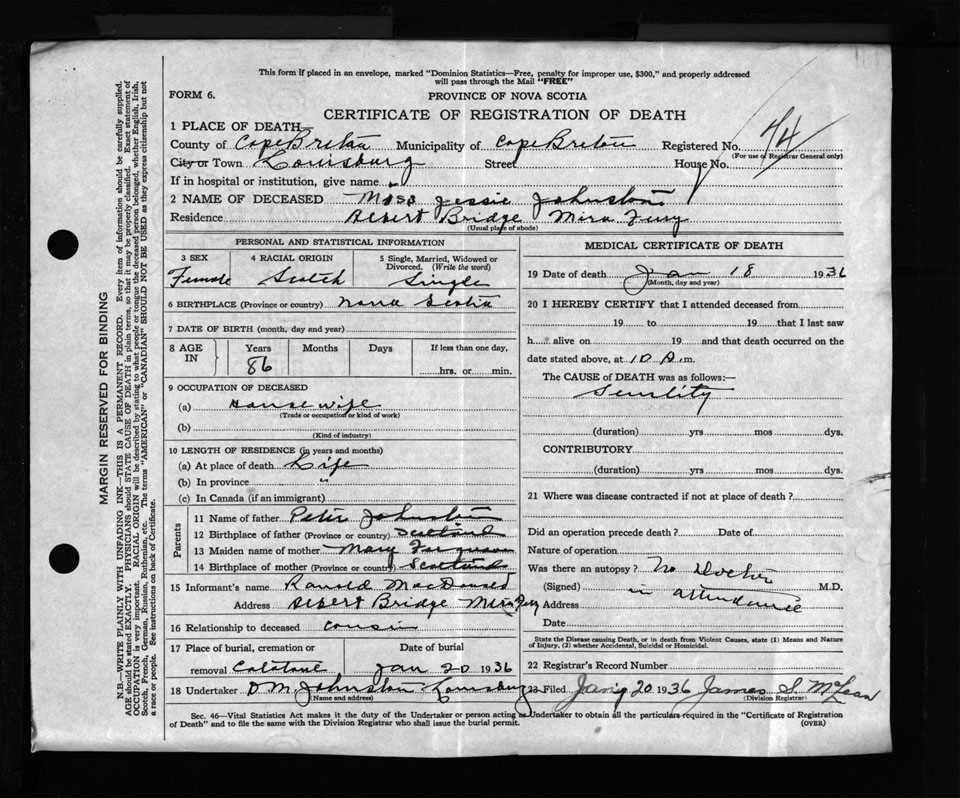 This form if placed in an envelope, marked "Dominion Statistics—Free, penalty for improper use, $300," and properly addressed
will pass through the Mail "FREE"
FORM 6.
PROVINCE OF NOVA SCOTIA
CERTIFICATE OF REGISTRATION OF DEATH
1 PLACE OF DEATH
County of Cape Breton Municipality of Cape Breton Registered No. 74
(For use of Registrar General only)
City or Town Louisburg Street House No.
If in hospital or institution, give name
2 NAME OF DECEASED Miss Jessie Johnston
Residence Albert Bridge Mira Fury
(Usual place of abode)
PERSONAL AND STATISTICAL INFORMATION
3 SEX 4 RACIAL ORIGIN 5 Single, Married, Widowed or
Divorced. (Write the word)
Female Scotch Single
6 BIRTHPLACE (Province or country) Nova Scotia
7 DATE OF BIRTH (month, day and year)
8 AGE IN Years Months Days If less than one day,
86 hrs. or min.
9 OCCUPATION OF DECEASED
(a) Housewife
(Trade or occupation or kind of work)
(b)
(Kind of industry)
10 LENGTH OF RESIDENCE (in years and months)
(a) At place of death Life
(b) In province "
(c) In Canada (if an immigrant)
Parents
11 Name of father Peter Johnston
12 Birthplace of father (Province or country) Scotland
13 Maiden name of mother Mary Ferguson
14 Birthplace of mother (Province or country) Scotland
15 Informant's name Ronald MacDonald
Address Albert Bridge Mira Fury
16 Relationship to deceased cousin
17 Place of burial, cremation or Date of burial
removal Jan 20 1936
18 Undertaker D M Johnston Louisburg
(Name and address)
MEDICAL CERTIFICATE OF DEATH
19 Date of death Jan 18 1936
(Month, day and year)
20 I HEREBY CERTIFY that I attended deceased from
19 to 19 that I last saw
h alive on 19 and that death occurred on the
date stated above, at 10 A. m.
The CAUSE of DEATH was as follows:—
Senility
(duration) yrs mos dys.
CONTRIBUTORY
(duration) yrs mos dys.
21 Where was disease contracted if not at place of death?
Did an operation precede death? Date of
Nature of operation
Was there an autopsy? No Doctor
(Signed) in attendance M.D.
Address
Date
State the Disease causing Death, or in death from Violent Causes, state (1) Means and Nature
of Injury, (2) whether Accidental, Suicidal or Homicidal.
22 Registrar's Record Number
23 Filed Jany 20 1936 James S. McLean
(Division Registrar)
Sec. 46—Vital Statistics Act makes it the duty of the Undertaker or person acting as Undertaker to obtain all the particulars required in the "Certificate of Registration
of Death" and to file the same with the Division Registrar who shall issue the burial permit.
(OVER)
MARGIN RESERVED FOR BINDING
N.B.—WRITE PLAINLY WITH UNFADING INK—THIS IS A PERMANENT RECORD. Every item of information should be carefully supplied.
AGE should be stated EXACTLY. PHYSICIANS should STATE CAUSE OF DEATH in plain terms, so that it may be properly classified. Exact statement of
OCCUPATION is very important. RACIAL ORIGIN will be described by stating to what people or tongue the deceased person belonged, whether English, Irish,
Scotch, French, German, Russian, Ruthenian, etc. The terms "AMERICAN" or "CANADIAN" SHOULD NOT BE USED as they express citizenship but not
a race or people. See instructions on back of Certificate.